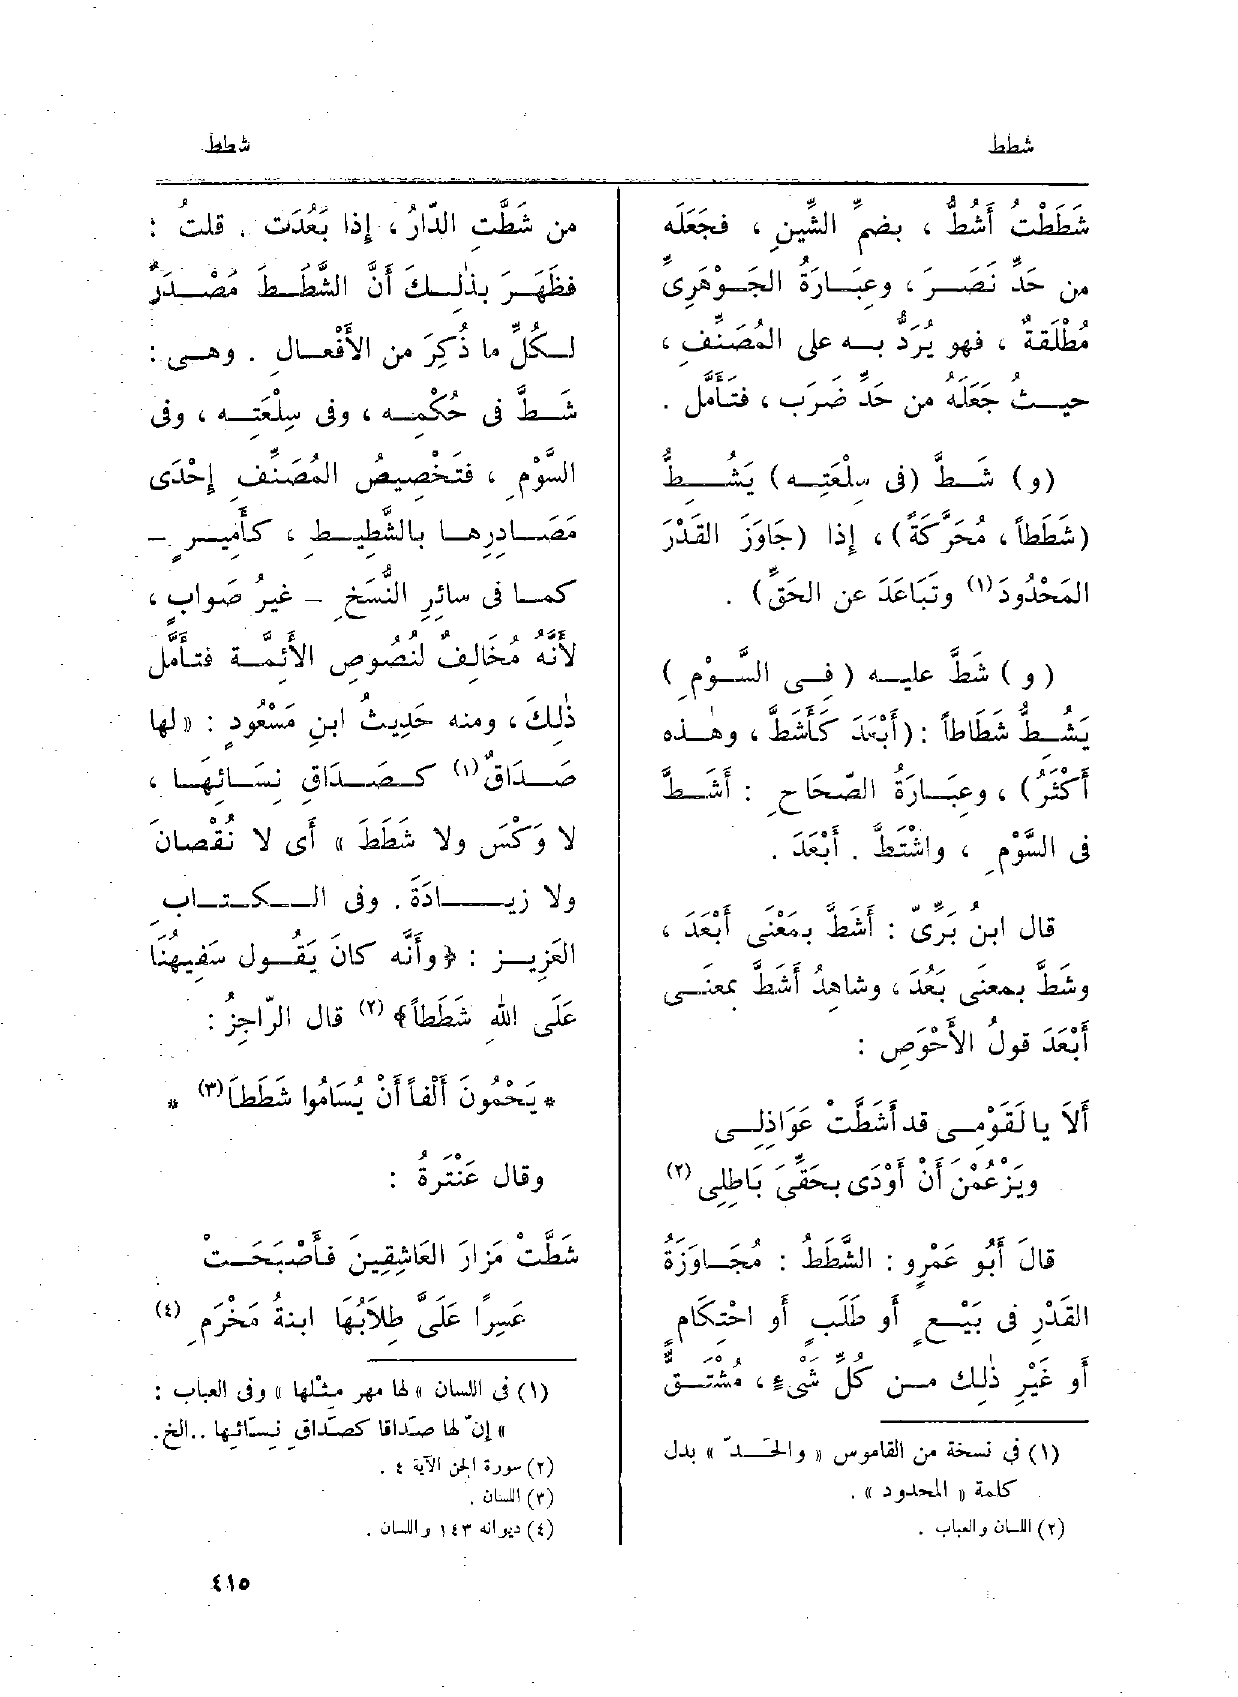 شطط
شطط
شَطَطْتُ أَشُطُّ ، بضمِّ الشِّينِ ، فجَعَلَه
من حَدِّ نَصَــرَ ، وعِبَــارَةُ الجَــوْهَرِىِّ
مُطْلَقةٌ ، فهو يُرَدُّ بــه على المُصَنِّف ،
حيــثُ جَعَلَه من حَدِّ ضَرَب ، فتَأَمَّل .
(و) شَــطَّ (فى سِلْعَتِــه) يَشُــطُّ
(شَطَطاً ، مُحَرَّكَةً) ، إذا (جَاوَزَ القَدْرَ
المَحْدُودَ(١) وتَبَاعَدَ عن الحَقِّ) .
( و ) شَطَّ عليــه ( فــى السَّــوْمِ )
يَشِــطُّ شَطَاطاً : (أَبْعَدَ كَأَشَطَّ ، وهٰــذه
أَكْثَرُ) ، وعِبَــارَةُ الصّحَاحِ : أَشَــطَّ
فى السَّوْمِ ، واشْتَطَّ . أَبْعَدَ .
قال ابن بَرِّىّ : أَشَطَّ بمَعْنَى أَبْعَدَ ،
وشَطَّ بمعنَى بَعُدَ ، وشاهِدُ أَشَطَّ بمعنــى
أَبْعَدَ قولُ الأَحْوَصِ :
أَلاَ يا لَقَوْمِــى قد أَشَطَّتْ عَوَاذِلِــى
ويَزْعُمْنَ أَنْ أَوْدَى بحَقِّىَ بَاطِلِى (٢)
قالَ أَبُو عَمْرٍو : الشَّطَطُ : مُجَــاوَزَةُ
القَدْرِ فى بَيْــعٍ أو طَلَبٍ أو احْتِكَامٍ
أو غَيْرِ ذٰلِك مــن كُلِّ شَىْءٍ ، مُشْتَــقٌّ
(١) فى نسخة من القاموس « والحَــدّ » بدل
كلمة « المحدود » .
(٢) اللسان والعباب .
من شَطَّتِ الدَّارُ ، إذا بَعُدَت . قلتُ :
فظَهَــرَ بذٰلِــكَ أَنَّ الشَّطَــطَ مَصْــدَرٌ
لــكُلِّ ما ذُكِرَ من الأَفْعــالِ . وهــى :
شَــطَّ فى حُكْمِــه ، وفى سِلْعَتِــه ، وفى
السَّوْمِ ، فتَخْصِيصُ المُصَنِّفِ إِحْدَى
مَصَــادِرِهــا بالشَّطِيــطِ ، كــأَمِيــرٍ ــ
كمــا فى سائِرِ النُّسَخِ ــ غيرُ صَوابٍ ،
لأَنَّهُ مُخالِفٌ لنُصُوصِ الأَئِمَّــة فتَأَمَّل
ذٰلِكَ ، ومنه حَدِيثُ ابنِ مَسْعُودٍ : « لها
صَــدَاقٌ(١) كــصَــدَاقِ نِسَــائِهَــا ،
لا وَكْسَ ولا شَطَطَ » أى لا نُقْصانَ
ولا زيــــادَةَ . وفى الــكــتــابِ
العَزِيــزِ : ﴿ وأَنَّه كانَ يَقُــولُ سَفِيهُنَا
عَلَى اللهِ شَطَطاً﴾ (٢) قال الرّاجِزُ :
* يَحْمُونَ أَلْفاً أَنْ يُسَامُوا شَطَطَا (٣) *
وقال عَنْتَرَةُ :
شَطَّتْ مَزارَ العَاشِقِينَ فأَصْبَحَــتْ
عَسِرًا عَلَىَّ طِلاَبُهَا ابنةُ مَخْرَمِ (٤)
(١) فى اللسان « لها مهر مِثْلها » وفى العباب :
« إنّ لها صَدَاقا كصَدَاقِ نِسَائِها ..الخ.
(٢) سورة الجن الآية ٤ .
(٣) اللسان .
(٤) ديوانه ١٤٣ واللسان .
٤١٥